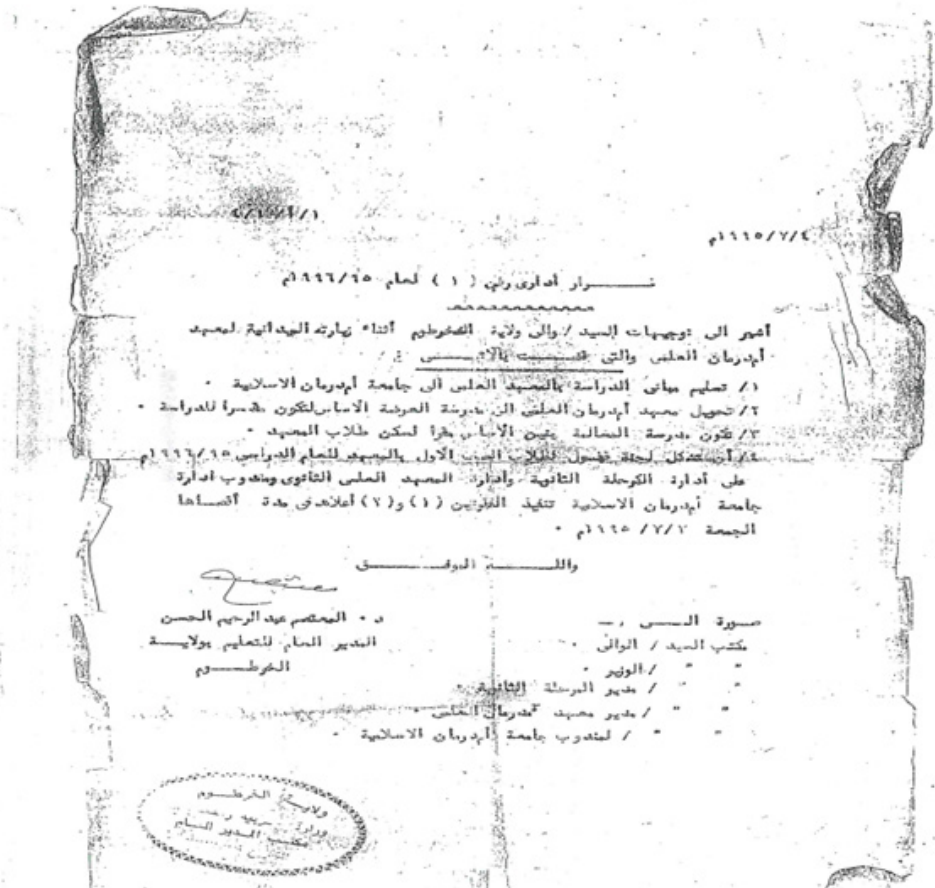 ١٩٩٥/٧/٤م
قـــرار أدارى رقم ( ١ ) لعام ١٩٩٦/٩٥م
أشير الى توجيهات السيد / والى ولاية الخرطوم أثناء زيارته الميدانية لمعهد
أمدرمان العلمى والتى
١/ تسليم مبانى الدراسة بالمعهد العلمى الى جامعة أمدرمان الاسلامية ٠
٢/ تحويل معهد أمدرمان العلمى الى مدرسة العرضة الاساس لتكون مقــرا للدراسة ٠
٣/ تكون مدرسة بنين الأساس مقرا لسكن طلاب المعهد ٠
٤/ أن تشكل لجنة قبول لطلاب الصف الاول بالمعهد للعام الدراسى ١٩٩٦/٩٥م
على أدارة المرحلة الثانوية وأدارة المعهد العلمى الثانوى ومندوب أدارة
جامعة أمدرمان الاسلامية تنفيذ (١) و(٢) أعلاه فى مدة أقصــاها
الجمعة ١٩٩٥/٧/٧م ٠
واللــــه الموفـــــق
د ٠ المعتصم عبد الرحيم الحسن
المدير العام للتعليم بولايـــة
الخرطـــوم
صــورة الــــى :ــ
مكتب السيد / الوالى ٠
" " / الوزير ٠
" " / مدير المرحلة الثانوية ٠
" " / مدير معهد أمدرمان العلمى ٠
" " / لمندوب جامعة أمدرمان الاسلامية ٠
ولايــة الخرطــوم
مكتب المدير العــام